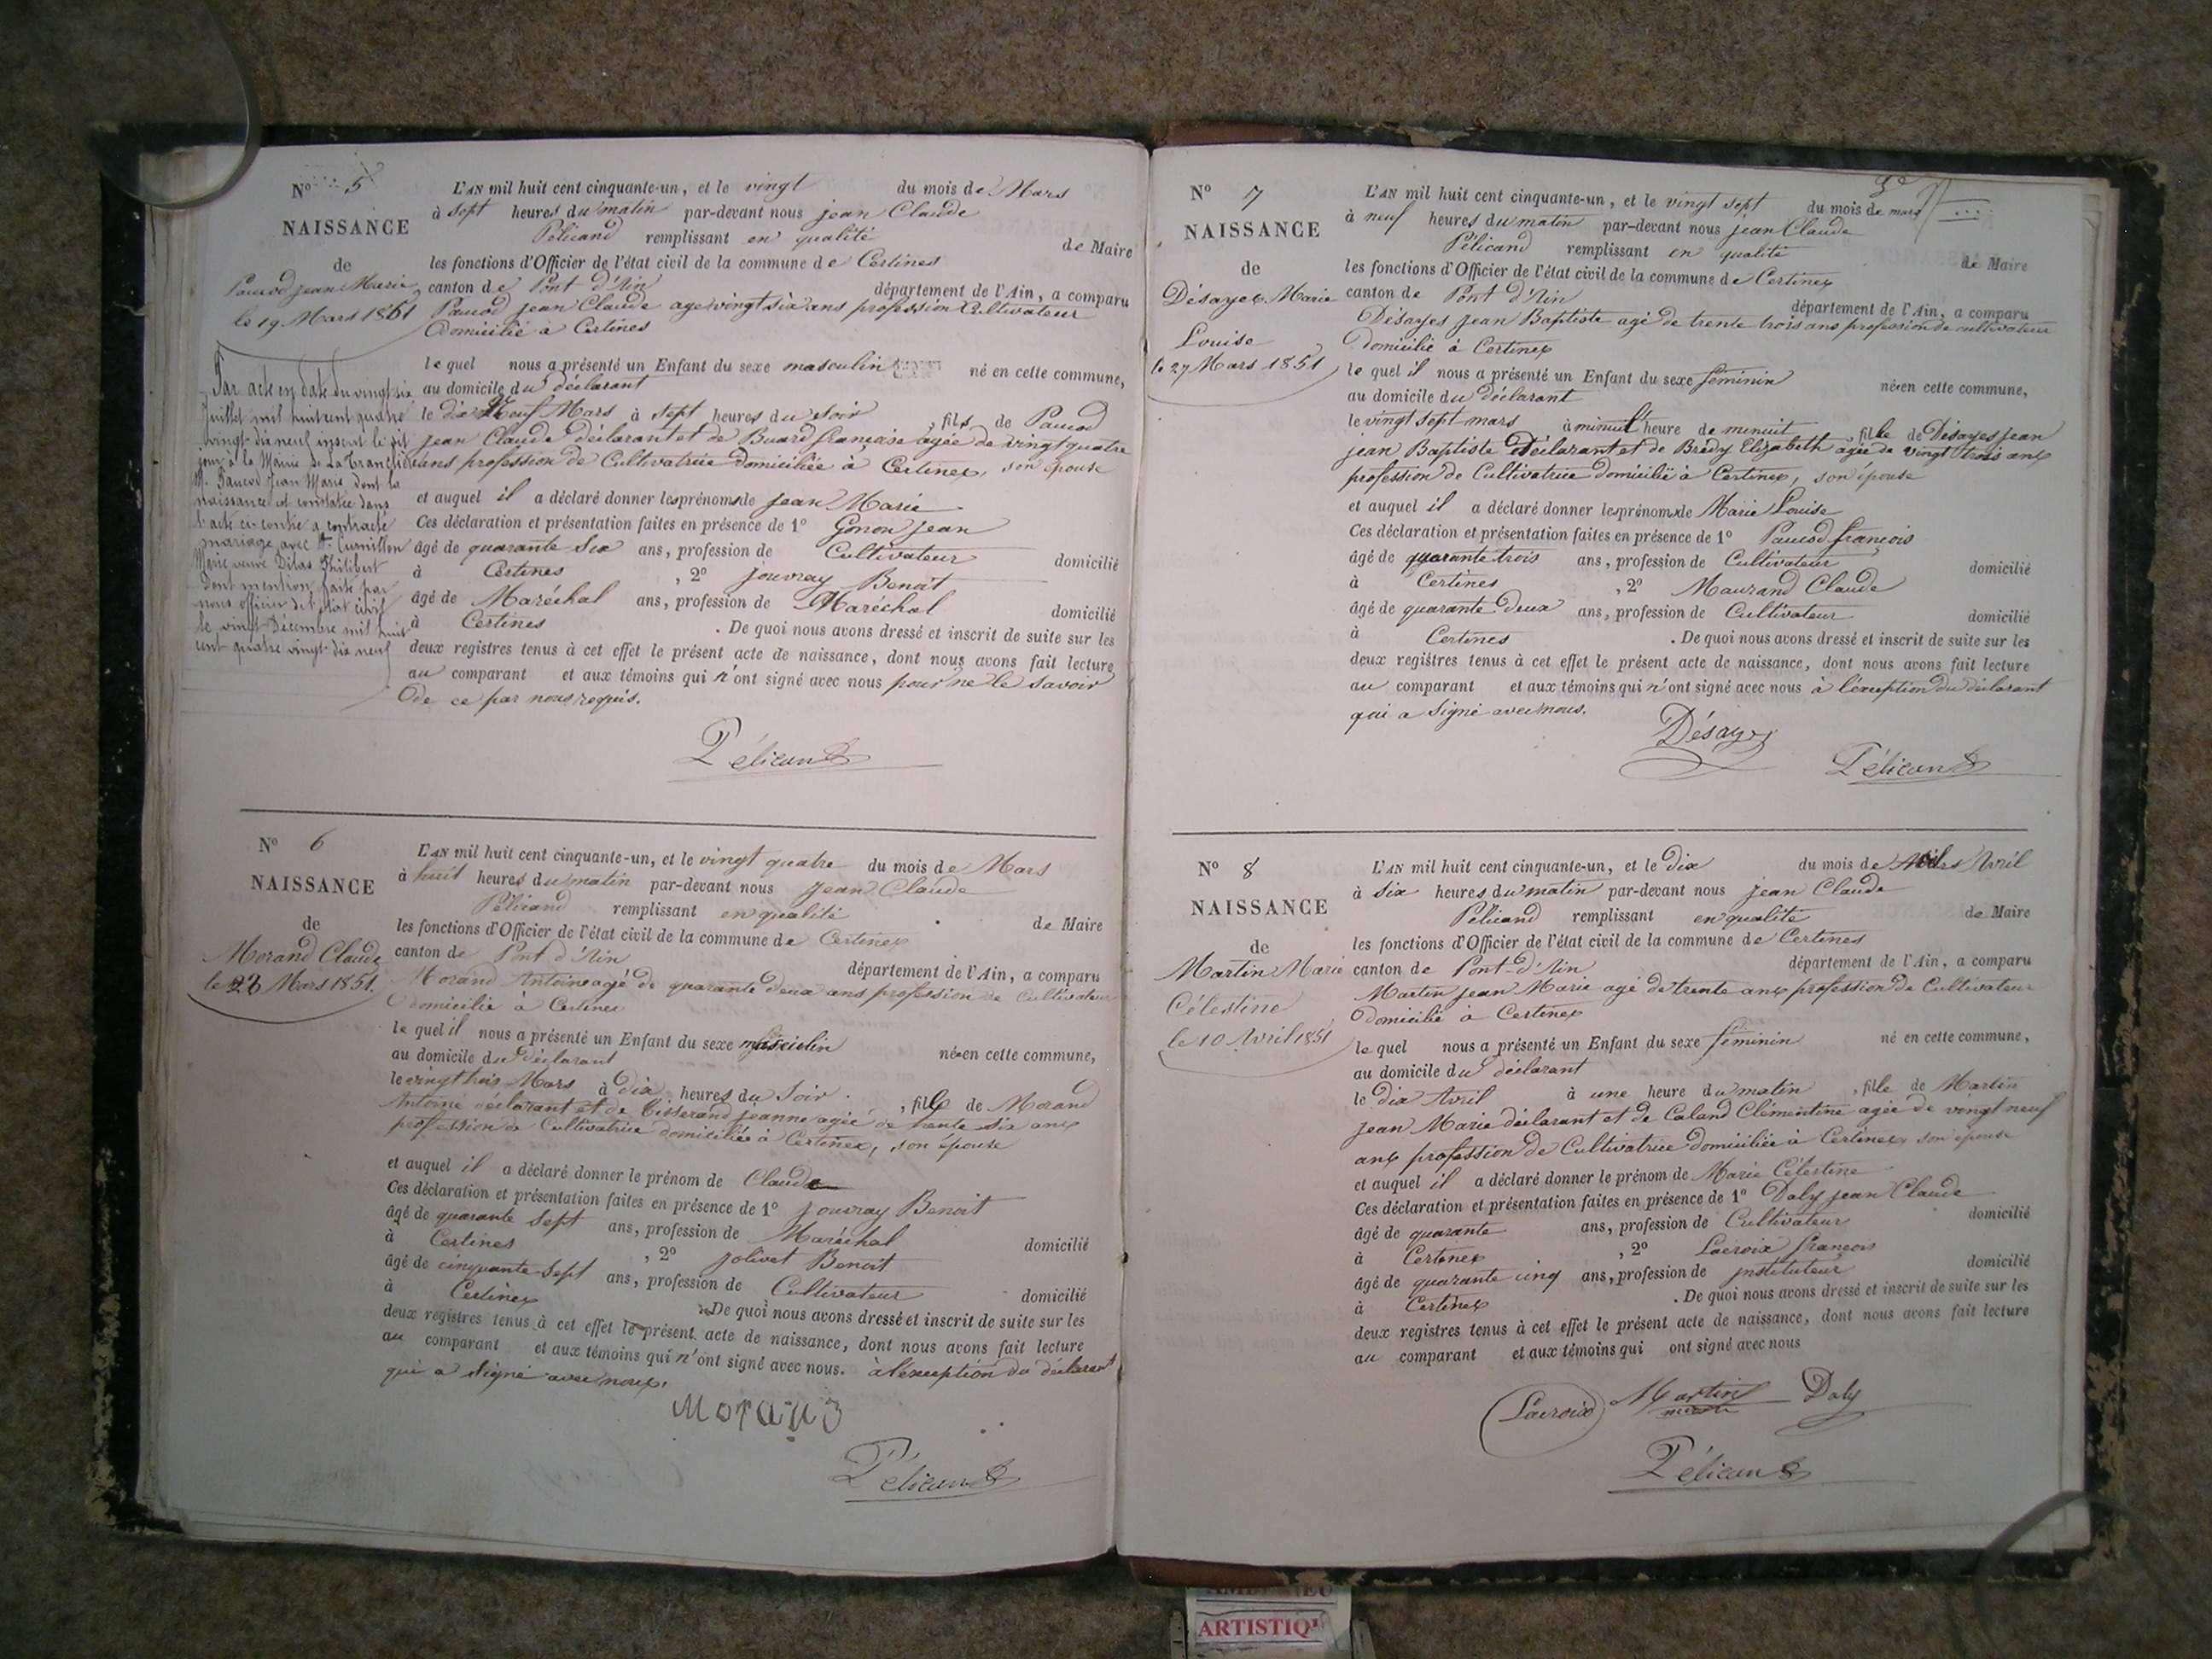 No 5
NAISSANCE
de
Paucod jean Marie
le 19 Mars 1851
Par acte en date du vingt six
juillet mil huit cent quatre
vingt-dix neuf inscrit le dit
jour à la Mairie de La Tranclière
M. Paucod Jean Marie dont la
naissance est constatée dans
l'acte ci-contre a contracté
mariage avec Me Curnillon
Marie veuve Dilas Philibert
Dont mention faite par
nous officier de l'état civil
le vingt Décembre mil huit
cent quatre vingt-dix neuf
L'AN mil huit cent cinquante-un, et le vingt du mois de Mars
à sept heures du matin par-devant nous jean Claude
Pélicand remplissant en qualité de Maire
les fonctions d'Officier de l'état civil de la commune de Certines
canton de Pont d'Ain département de l'Ain, a comparu
Paucod jean Claude age vingt six ans profession Cultivateur
Domicilié à Certines
le quel nous a présenté un Enfant du sexe masculin né en cette commune,
au domicile du déclarant
le dix Neuf Mars à sept heures du soir, fils de Paucod
jean Claude déclarant et de Buard françoise agée de vingt quatre
ans profession de Cultivatrice domiciliée à Certines, son épouse
et auquel il a déclaré donner les prénoms de jean Marie
Ces déclaration et présentation faites en présence de 1o Gonon jean
âgé de quarante Six ans, profession de Cultivateur domicilié
à Certines, 2o jouvray Benoit
âgé de Maréchal ans, profession de Maréchal domicilié
à Certines. De quoi nous avons dressé et inscrit de suite sur les
deux registres tenus à cet effet le présent acte de naissance, dont nous avons fait lecture
au comparant et aux témoins qui n'ont signé avec nous pour ne le savoir
De ce par nous requis.
Pélicand
No 6
NAISSANCE
de
Morand Claude
le 23 Mars 1851.
L'AN mil huit cent cinquante-un, et le vingt quatre du mois de Mars
à huit heures du matin par-devant nous jean Claude
Pélicand remplissant en qualité de Maire
les fonctions d'Officier de l'état civil de la commune de Certines
canton de Pont d'Ain département de l'Ain, a comparu
Morand Antoine agé de quarante deux ans profession de Cultivateur
Domicilié à Certines
le quel il nous a présenté un Enfant du sexe masculin né en cette commune,
au domicile du déclarant
le vingt trois Mars à dix heures du Soir, fils de Morand
Antoine déclarant et de Tisserand jeanne agée de trente six ans
profession de Cultivatrice domiciliée à Certines, son épouse
et auquel il a déclaré donner le prénom de Claude
Ces déclaration et présentation faites en présence de 1o jouvray Benoit
âgé de quarante sept ans, profession de Maréchal domicilié
à Certines, 2o jolivet Benoit
âgé de cinquante sept ans, profession de Cultivateur domicilié
à Certines. De quoi nous avons dressé et inscrit de suite sur les
deux registres tenus à cet effet le présent acte de naissance, dont nous avons fait lecture
au comparant et aux témoins qui n'ont signé avec nous. à l'exception du déclarant
qui a signé avec nous.
Morand
Pélicand
No 7
NAISSANCE
de
Désayes Marie
Louise
le 27 Mars 1851
L'AN mil huit cent cinquante-un, et le vingt sept du mois de mars
à neuf heures du matin par-devant nous jean Claude
Pélicand remplissant en qualité de Maire
les fonctions d'Officier de l'état civil de la commune de Certines
canton de Pont d'Ain département de l'Ain, a comparu
Désayes jean Baptiste agé de trente trois ans profession de cultivateur
domicilié à Certines
le quel il nous a présenté un Enfant du sexe féminin né en cette commune,
au domicile du déclarant
le vingt sept mars à minuit heure de minuit, fille de Désayes jean
jean Baptiste Déclarant et de Brédy Elizabeth agée de vingt trois ans
profession de Cultivatrice domiciliée à Certines, son épouse
et auquel il a déclaré donner les prénoms de Marie Louise
Ces déclaration et présentation faites en présence de 1o Paucod françois
âgé de quarante trois ans, profession de Cultivateur domicilié
à Certines, 2o Maurand Claude
âgé de quarante deux ans, profession de Cultivateur domicilié
à Certines. De quoi nous avons dressé et inscrit de suite sur les
deux registres tenus à cet effet le présent acte de naissance, dont nous avons fait lecture
au comparant et aux témoins qui n'ont signé avec nous à l'exception du déclarant
qui a signé avec nous.
Désayes
Pélicand
No 8
NAISSANCE
de
Martin Marie
Célestine
le 10 Avril 1851
L'AN mil huit cent cinquante-un, et le dix du mois de Avril
à six heures du matin par-devant nous jean Claude
Pélicand remplissant en qualité de Maire
les fonctions d'Officier de l'état civil de la commune de Certines
canton de Pont-d'Ain département de l'Ain, a comparu
Martin jean Marie agé de trente ans profession de Cultivateur
Domicilié à Certines
le quel nous a présenté un Enfant du sexe féminin né en cette commune,
au domicile du déclarant
le dix Avril à une heure du matin, fille de Martin
jean Marie déclarant et de Caland Clémentine agée de vingt neuf
ans profession de Cultivatrice domiciliée à Certines, son épouse
et auquel il a déclaré donner le prénom de Marie Célestine
Ces déclaration et présentation faites en présence de 1o Daly jean Claude
âgé de quarante ans, profession de Cultivateur domicilié
à Certines, 2o Lacroix françois
âgé de quarante cinq ans, profession de jnstituteur domicilié
à Certines. De quoi nous avons dressé et inscrit de suite sur les
deux registres tenus à cet effet le présent acte de naissance, dont nous avons fait lecture
au comparant et aux témoins qui ont signé avec nous
Lacroix Martin Daly
Pélicand
ARTISTIQ